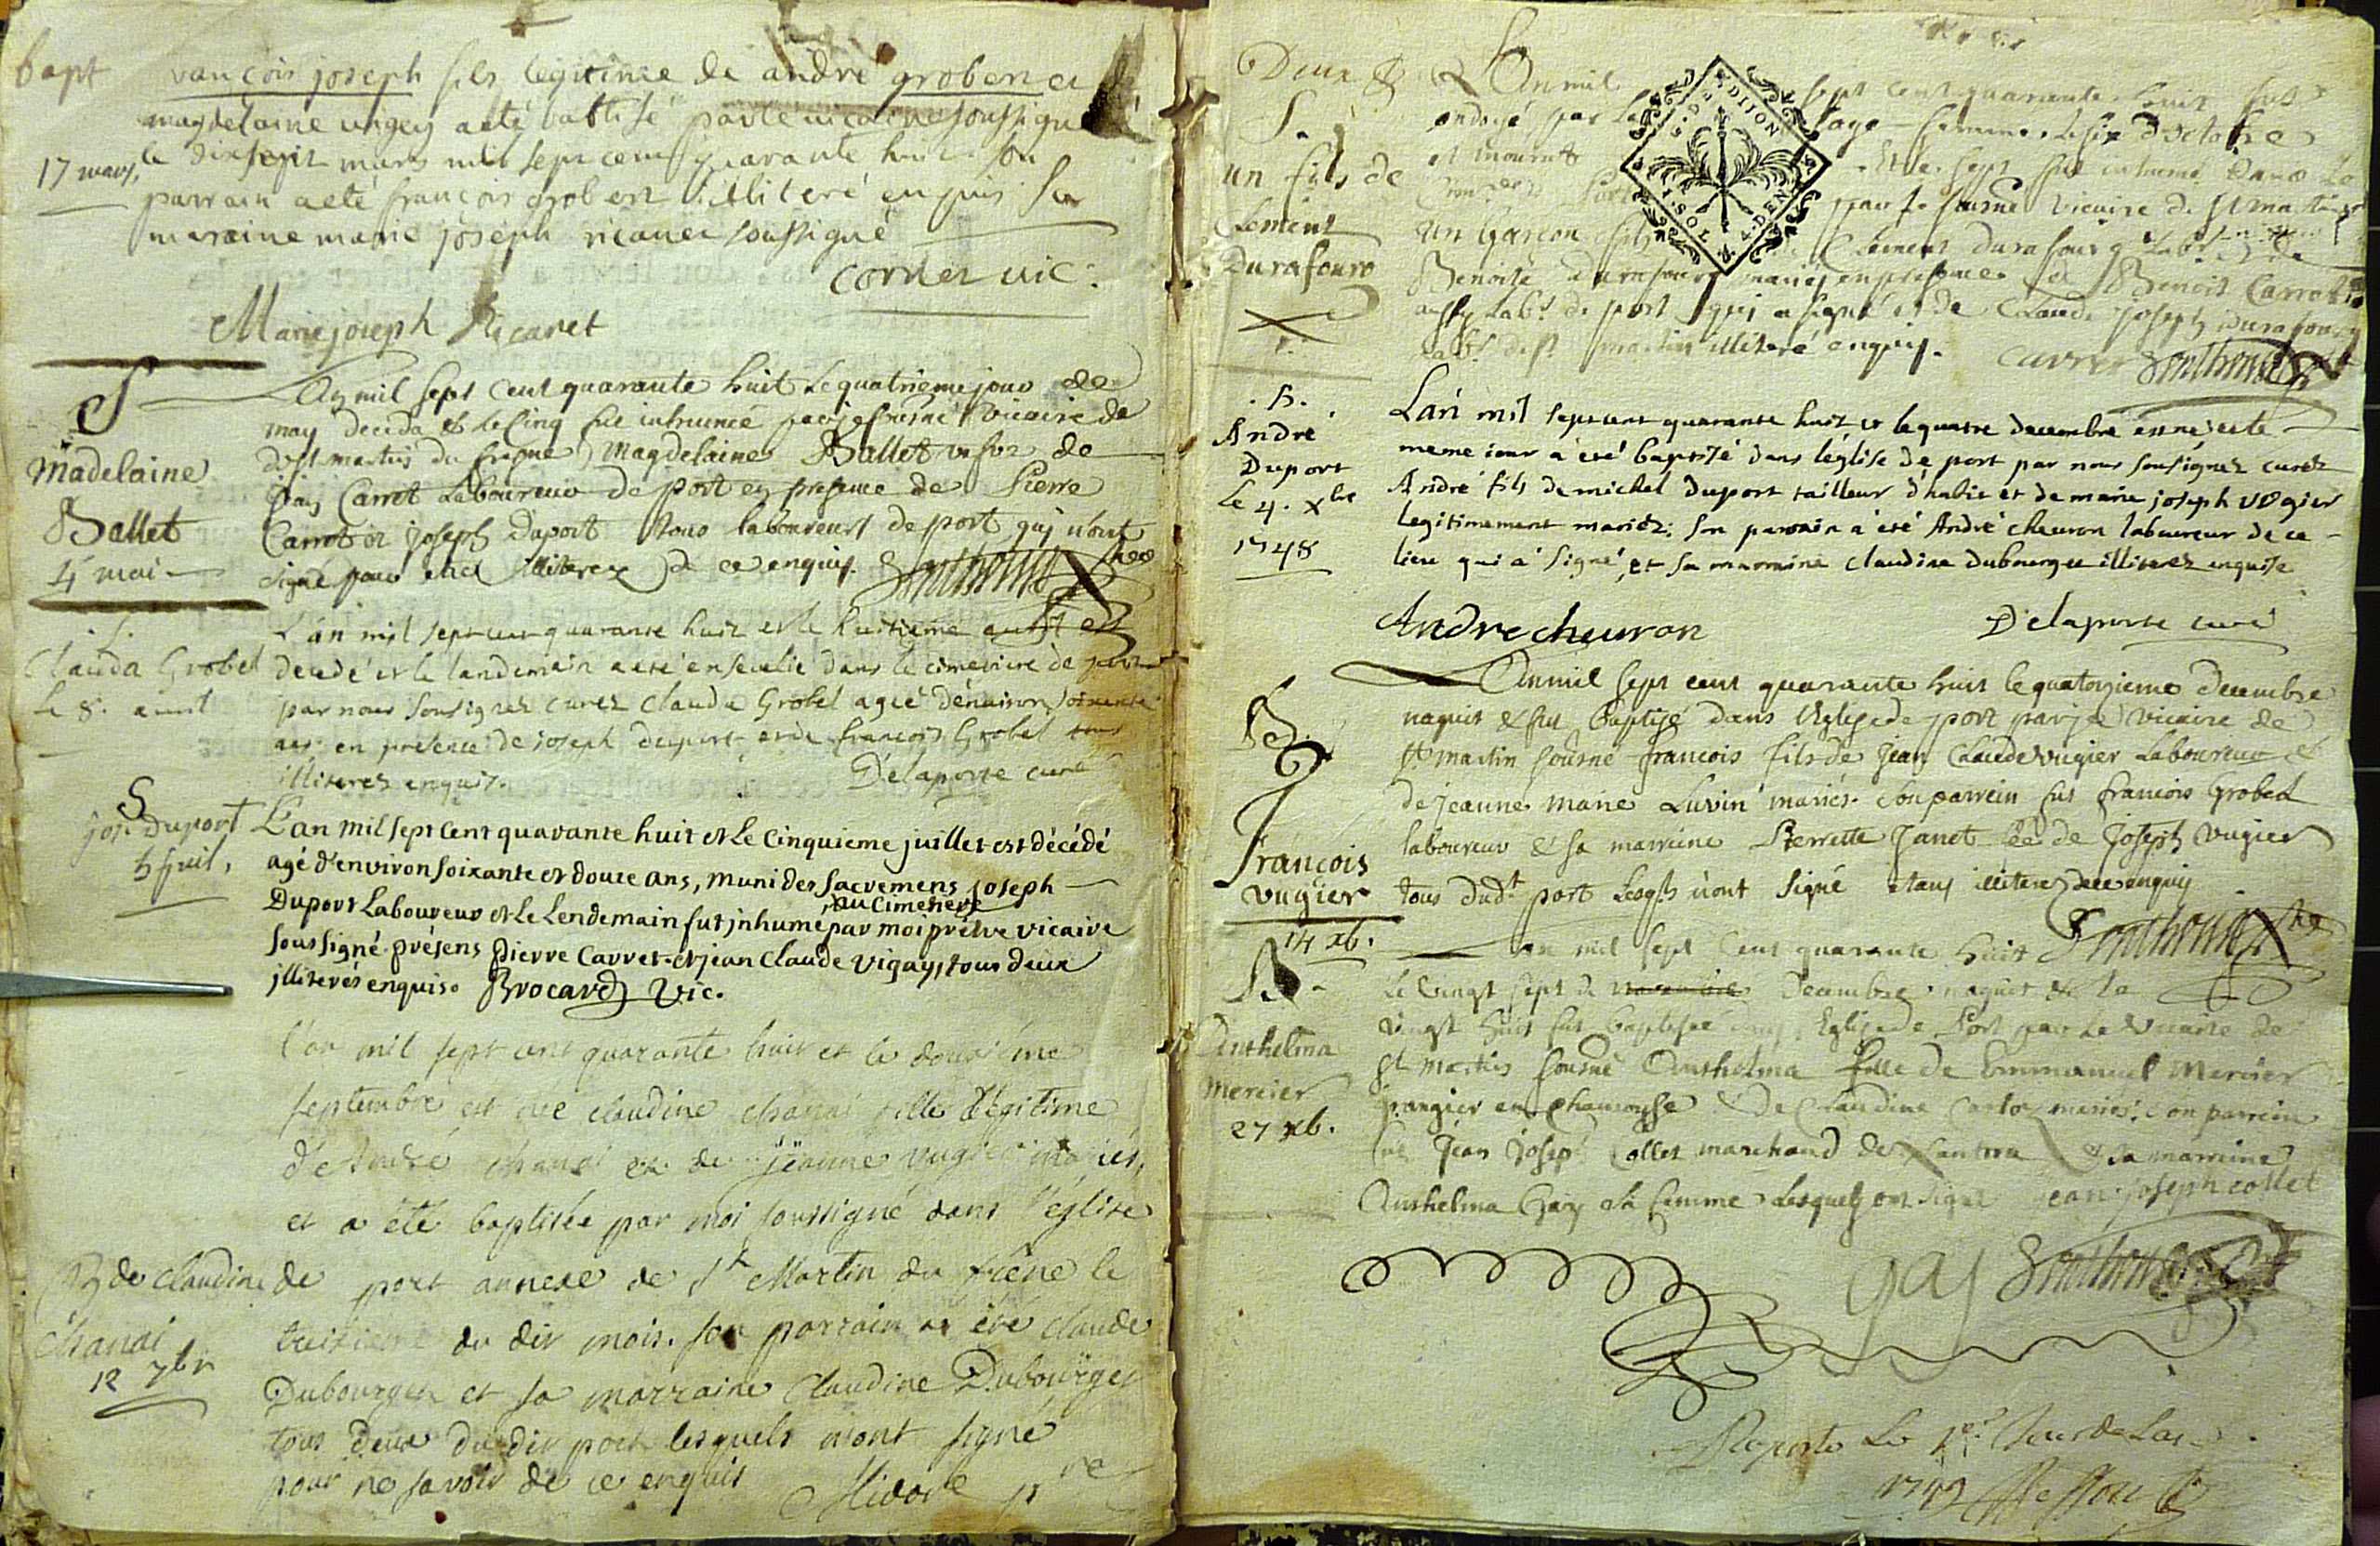 bapt
vançois joseph fils legitime de andré groben et de
magdelaine vugey a eté battisé par le vicaire soussigné
17 mars,
le dixsept mars mil sept cent quarante huit son
parrain a eté françois groben illiteré enquis sa
maraine marie joseph ricaner soussigné
corner vic:
Marie joseph Ricaret
S
Madelaine
Ballet
4 mai
L'an mil sept cent quarante huit le quatrieme jour de
may deceda & le cinq fut inhumée par je sousné vicaire de
de st martin du fresne Magdelaine Ballet vefve de
Carrot Laboureur de port en presence de Pierre
Carrot et joseph duport tous laboureurs de port qui n'ont
signé pour etre illiterez de ce enquis.
Clauda Grobel
Le 8. aoust
L'an mil sept cent quarante huit et le huitieme aoust est
decedé et le landemain a eté ensevelie dans le cimetiere de port
par nous sousignez curez Clauda Grobel agée d'environ soixante
ans en presence de joseph duport et de francois Grobel tous
illiterez enquis.
Delaporte curé
S
jos. Duport
5 juil,
L'an mil sept cent quarante huit et le cinquieme juillet est décédé
agé d'environ soixante et douze ans, muni des sacremens joseph
Duport Laboureur et le lendemain fut jnhumé au cimetiere par moi prêtre vicaire
soussigné présens pierre Carret et jean Claude vigay, tous deux
jlliterés enquis. Brocard vic.
l'an mil sept cent quarante huit et le douzième
septembre est née claudine chanai fille légitime
d'André chanai et de jeanne vugier mariés,
et a été baptisée par moi soussigné dans l'église
B de claudine
chanai
12 7br
de port annexe de St Martin du frêne le
treizieme du dit mois. son parrain a été claude
Dubourget et sa marraine claudine Dubourget
tous deux du dit port lesquels n'ont signé
pour ne savoir de ce enquis
Deux S
S.
un fils de
Clement
Durafourg
L'an mil sept cent quarante huit fut
ondoyé par la sage femme le six d'octobre
et mourut Et le sept fut inhumé dans le
par je sousné vicaire de st martin
un Garcon fils de Clement durafourg Labr
Benoite durafourg mariés en presence de Benoit Carrot
aussy Labr de port qui a signé et de Claude joseph durafourg
Labr de st martin illiteré enquis.
G.D. DIJON
4. DEN
SOL
.B.
André
Duport
Le 4. Xbre
1748
L'an mil sept cent quarante huit et le quatre decembre est né et le
meme iour à eté baptisé dans l'église de port par nous sousignez curez
André fils de michel duport tailleur d'habit et de marie joseph vugier
legitimement mariez; son parrain à eté André cheuron laboureur de ce
lieu qui à signé, et sa marraine claudine dubourget illiterez enquise
Andre cheuron
Delaporte curé
B.
François
vugier
14 xb.
L'an mil sept cent quarante huit le quatorzieme decembre
naquit & fut baptisé dans l'Eglise de port par je vicaire de
st martin sousné francois fils de jean Claude vugier Laboureur &
de jeanne marie Luvin mariés. son parrein fut francois Grobel
laboureur & sa marreine Pierrette Janet fée de Joseph vugier
tous dudt port lesqls n'ont signé etans illiterez de ce enquis
B.
Anthelma
Mercier
27 xb.
L'an mil sept cent quarante huit
Le vingt sept de novembre decembre naquit & le
vingt huit fut baptisée dans l'Eglise de Port par le vicaire de
st martin sousné Anthelma fille de Emmanuel Mercier
grangier en & de Claudine mariés. son parrein
fut Jean Joseph Collet marchand de Nantua & sa marreine
Anthelma Gay sa femme lesquels ont signé jean joseph collet
gay
1749